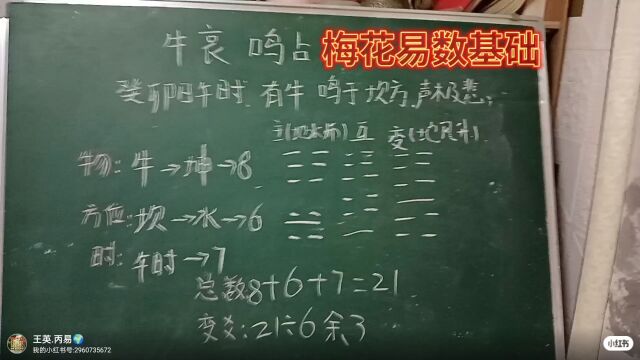 牛哀 鸣占 梅花易数基础
癸卯日午时 有牛 鸣于坎方,声极悲,
主(地水师) 互 变(地风升)
物:牛→坤→8
方位:坎→水→6
时:午时→7
总数8+6+7=21
变爻:21÷6余3
王英.丙易🌍
我的小红书号:2960735672
小红书